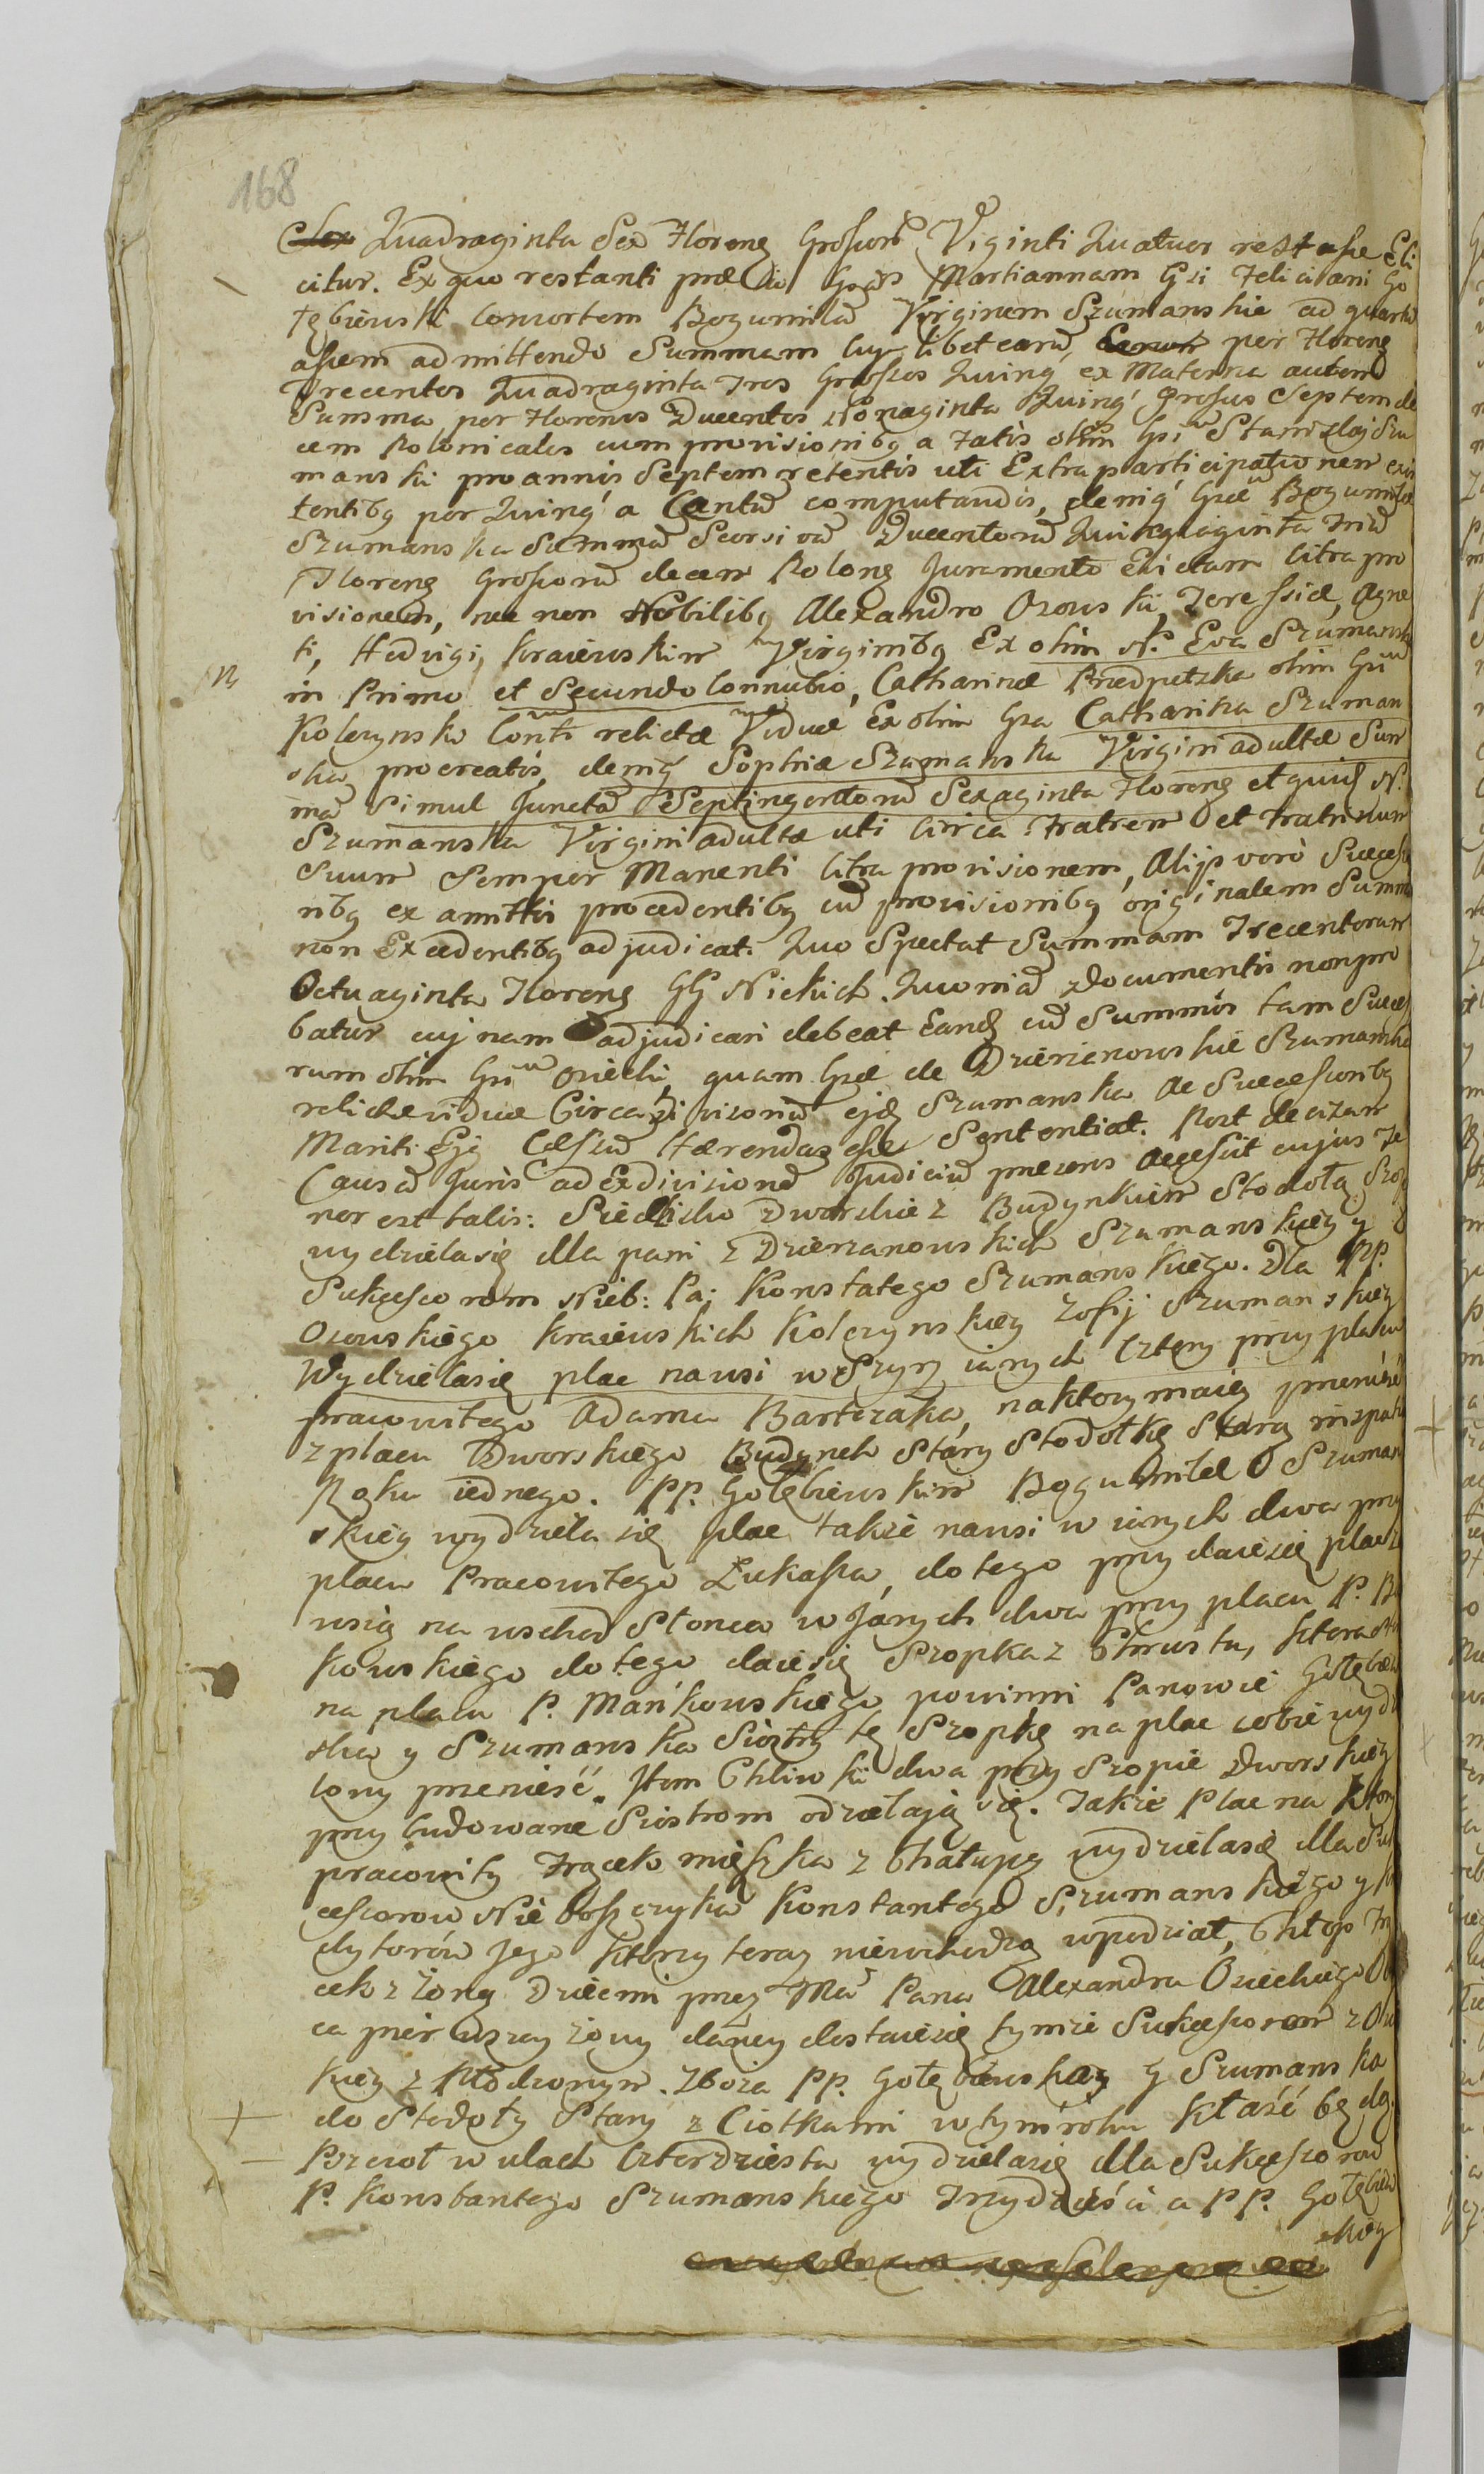 168
Quadraginta Sex Floreng Grossorū Viginti Quatuor restasse Eli
citur. Ex quo restanti prædia Martiannam Gsi Feliciani Go
łębiewski Consortem Bogumilā Virginem Szumanskie ad quartā
assem admittendo Summam cujlibet earū, per Floreng
Trecentos Quadraginta Tres Grossos Quinq ex Materna autem
Summa per Florenos Ducentos Nonaginta Quinq Grossus Septem de
cem Polonicales cum provisionibg a Fatis olim Gsi Stanislai Szu
manski pro annis Septem retentis uti Extra participationem exis
tentibg per Quinq a Centū computandis, deniq Gsæ Bogumilæ
Szumanska Summā Seorsivā Ducentorū Quinquaginta Triū
Floreng Grossorū decem Polong Juramento Elictam citra pro
visionem, nec non Nobilibg Alexandro Osowski, Teressiæ, Agne
ti, Hedvigi, Kraiewskim Virginibg Ex olim N. Eva Szumanska
in Primo et Secundo Connubio, Catharinæ Przedpełzka olim Gsi
Kolczynski Conti relictæ Viduæ Ex olim Gsa Catharina Szuman
ska procreatis, deniq Sophiæ Szumanska Virgini adultæ Sum
mā Simul Junctā Septingentorū Sexaginta Floreng et quid N.
Szumanska Virgini adultæ uti Circa Fratrem et Fratrinum
Suum Semper Manenti citra provisionem, Alijs verò Successo
ribg ex amittis procedentibg cū provisionibg originalem Summā
non Excedentibg adjudicat. Quo Spectat Summam Trecentorum
Octuaginta Floreng GG Nickich. Quoniā Documentis non pro
batur cujnam adjudicari debeat Eandē cū Summis tam Succes
rum olim Gsi Osiecki quam Gsæ de Dzierzanowskie Szumanska
relictæ viduæ Circa Divisionē ejdē Szumanska Ac Successoribg
Mariti Ejg Cessū Hærendas esse Sententiat. Post decizam
Causā Juris ad Exdivisionē Judiciū præsens Accessit cujus Te
nor est talis: Siedlisko Dworskie z Budynkiem Stodołą Szopą
wydziela się dlla pani z Dzierzanowskich Szumanskiey y
Sukcessorom Nieb: Pa: Konstatego Szumanskiego. Dla PP.
Osowskiego Kraiewskich Kolczynskiey Zofij Szumanskiey
Wydziela się plac na wsi w Szyrz iarych Cztery przy placu
pracowitego Adama Bartczaka, na ktory maią przenieść
z placu Dworskiego Budynek Stary Stodołkę Starą
Roku iednego. PP. Gołębiewskim Bogumile Szuman
skiey wydziela się plac także na wsi w iarych dwa przy
placu Pracowitego Łukasza, do tego przydaie się plac za
wsią na wschod Słonca w Jarych dwa przy placu P. Ma
kowskiego do tego daie się Szopka z Chrustu, ktora stoi
na placu P. Mańkowskiego powinni Panowie Gołębiew
ska y Szumanska Siostry tę Szopkę na plac sobie wydzie
lony przenieść. Item Chliwki dwa przy Szopie Dworskiey
przy budowane Siostrom odzielają się. Także Plac na ktory
pracowity Frącek mięszka z Chałupą wydziela się dlla Suk
cessorow Nieboszczyka Konstantego Szumanskiego y Kre
dytorów Jego ktorzy teraz niewchodzą w podział, Chłop Frą
cek z Żoną Dziecmi przez Mai Pana Alexandra Osieckiego
ca pier wszey żony daney dostaie się tymże Sukcessorom z
kiey z Młodzonym. Zboża PP. Gołębiewskiey y Szumanska
do Stodoły Stary z Ciotkami w tym roku kłaść będą.
Pszczoł w ulach Czterdziesta wydziela się dlla Sukcessorow
P. Konstantego Szumanskiego Trzydzieści a PP. Gołębiew
skiey